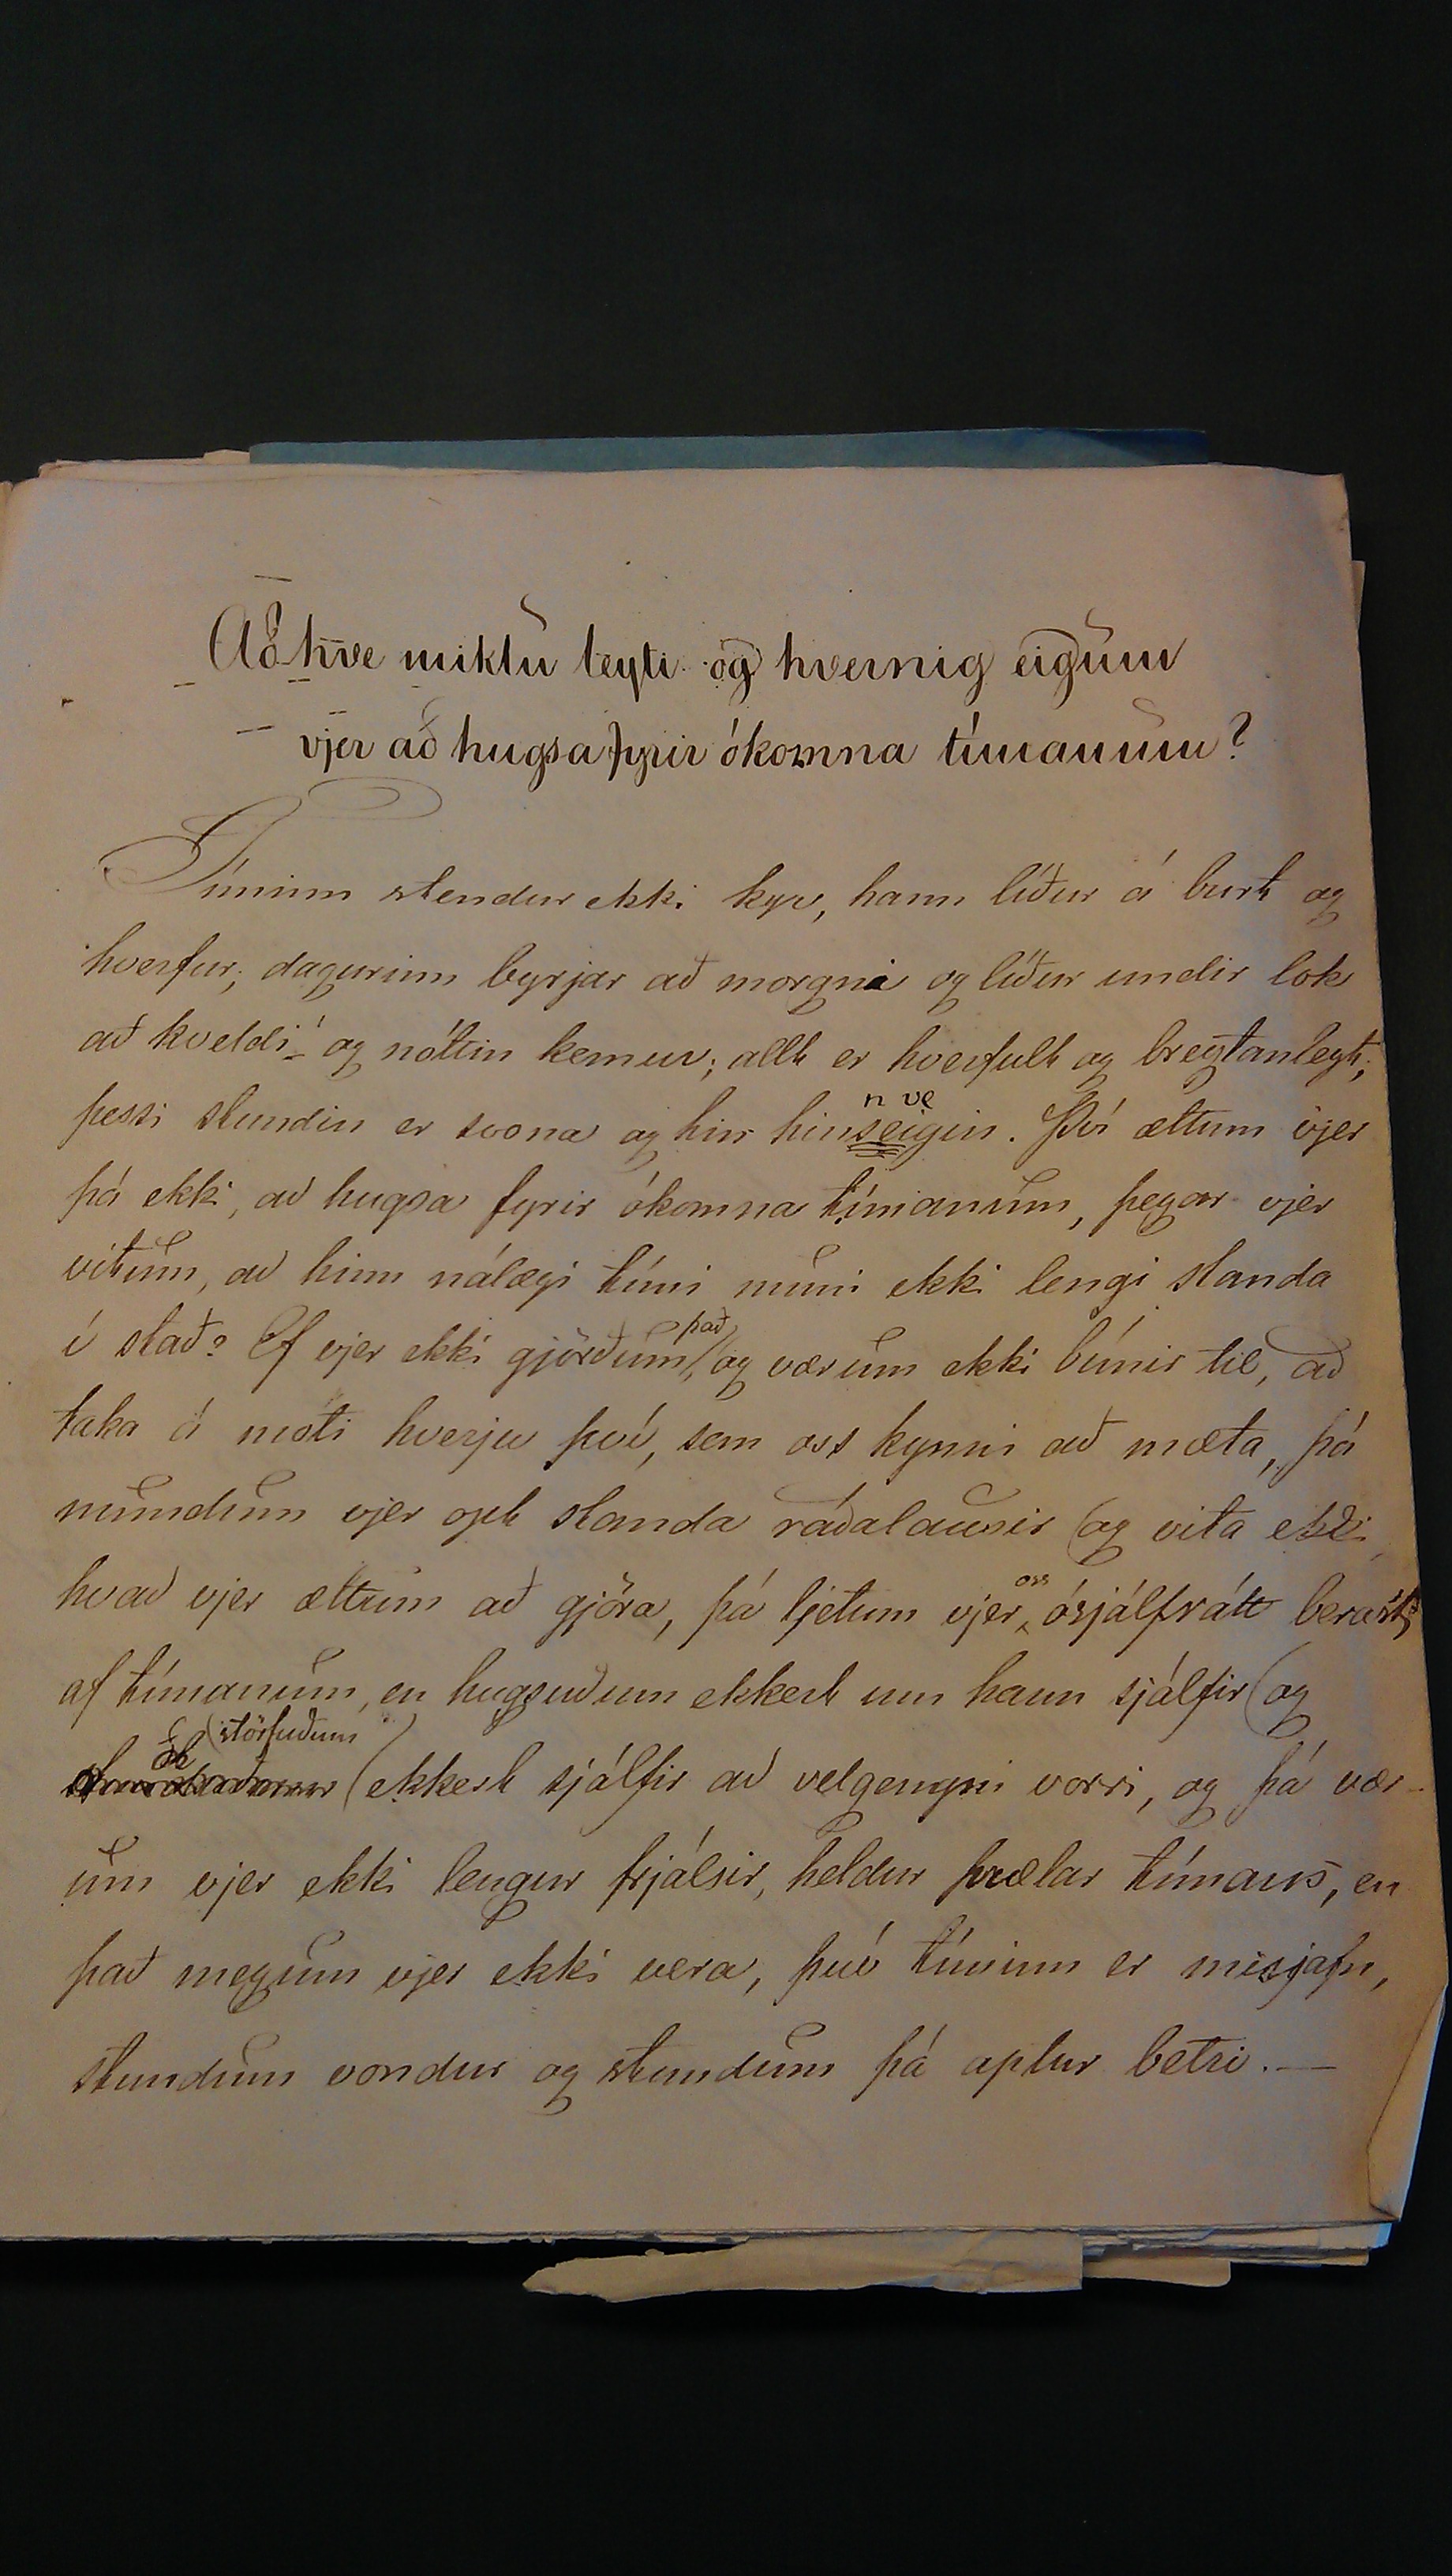 Að hve miklu leyti og hvernig eigum
vjer að hugsa fyrir ókomna tímanum?
Tíminn stendur ekki kyr, hann líður á burt og
hverfur; dagurinn byrjar að morgni og líður undir lok
að kveldi og nóttin kemur; allt er hverfult og breytanlegt;
n ve
þessi stundin er svona og hin hinseigin. Því ættum vjer
þá ekki, að hugsa fyrir ókomna tímanum, þegar vjer
vitum, að hinn nálægi tími muni ekki lengi standa
það
í stað? Ef vjer ekki gjörðum, og værum ekki búnir til, að
taka á móti hverju því, sem oss kynni að mæta, þá
mundum vjer opt standa ráðalausir (og vita ekki,
oss
hvað vjer ættum að gjöra, þá ljetum vjer ósjálfrátt berast
af tímanum, en hugsuðum ekkert um hann sjálfir (og
(störfuðum)
(ekkert sjálfir að velgengni vorri, og þá vær-
um vjer ekki lengur frjálsir, heldur þrælar tímans, en
það megum vjer ekki vera, því tíminn er misjafn,
stundum vondur og stundum þá aptur betri. —